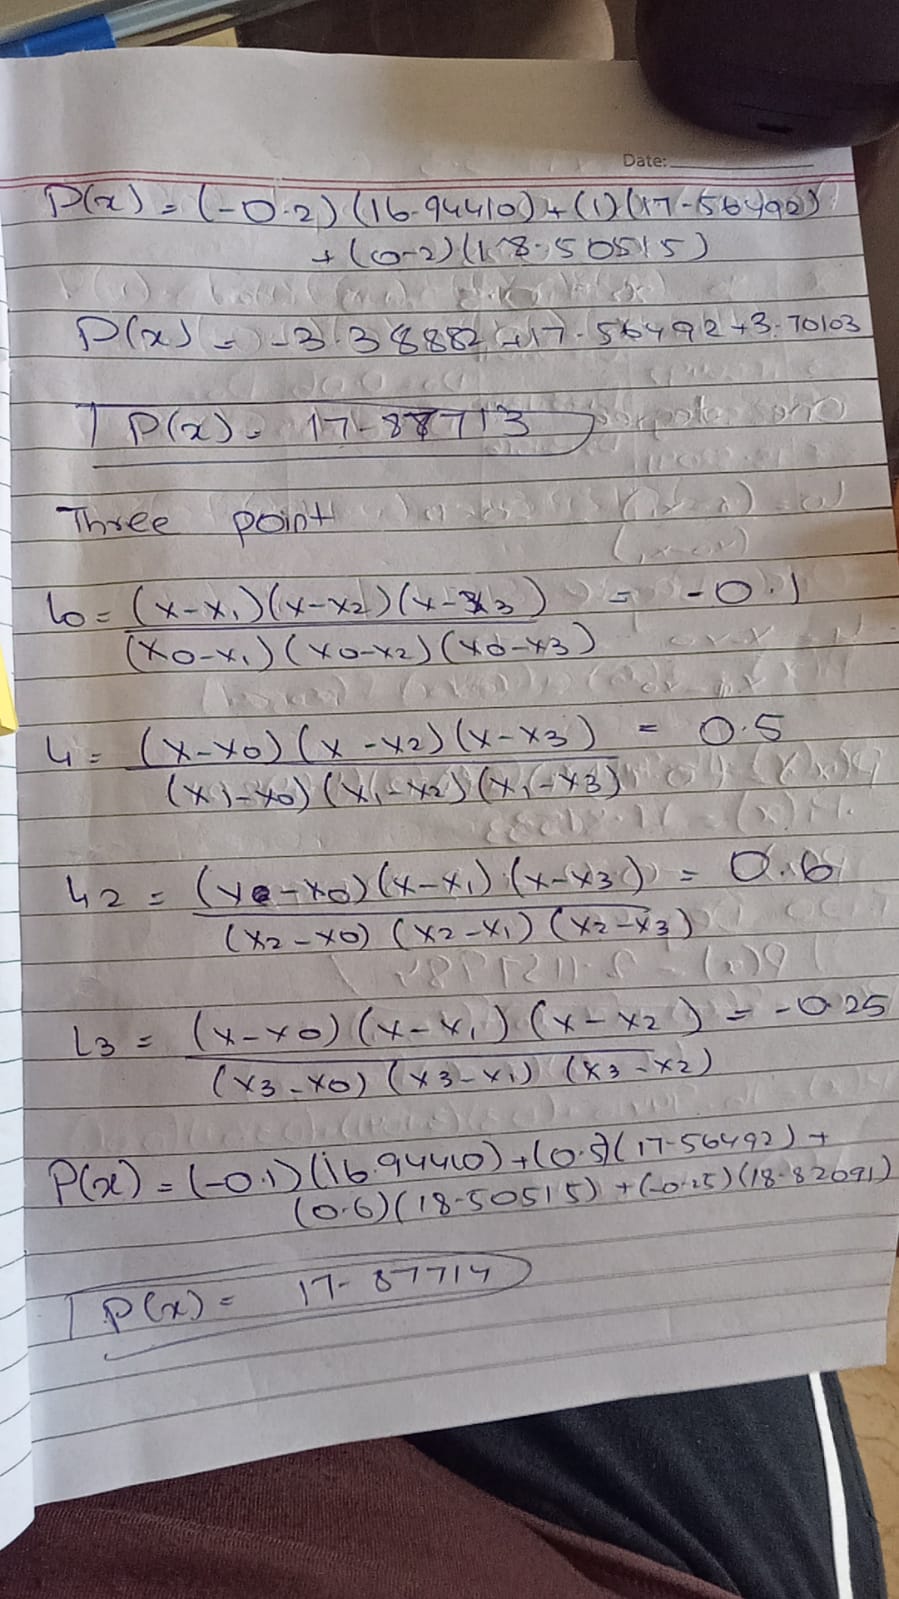 Date:
P(x) = (-0.2)(16.94410) + (1)(17-56492)
+ (0-2)(18-50515)
P(x) = -3.38882 +17-56492+3.70103
P(x) = 17-87713
Three point
L0 = (x-x1)(x-x2)(x-x3) = -0.1
(x0-x1)(x0-x2)(x0-x3)
L1 = (x-x0)(x-x2)(x-x3) = 0.5
(x1-x0)(x1-x2)(x1-x3)
L2 = (x-x0)(x-x1)(x-x3) = 0.6
(x2-x0)(x2-x1)(x2-x3)
L3 = (x-x0)(x-x1)(x-x2) = -0.25
(x3-x0)(x3-x1)(x3-x2)
P(x) = (-0.1)(16.94410)+(0.5)(17-56492)+
(0.6)(18-50515)+(-0.25)(18-82091)
P(x) = 17-87714